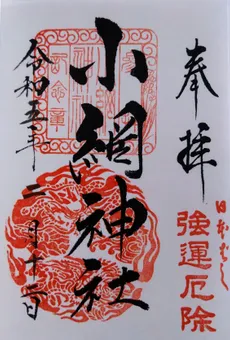 奉拝
日本ばし
強運厄除
小網神社
令和五年二月十二日